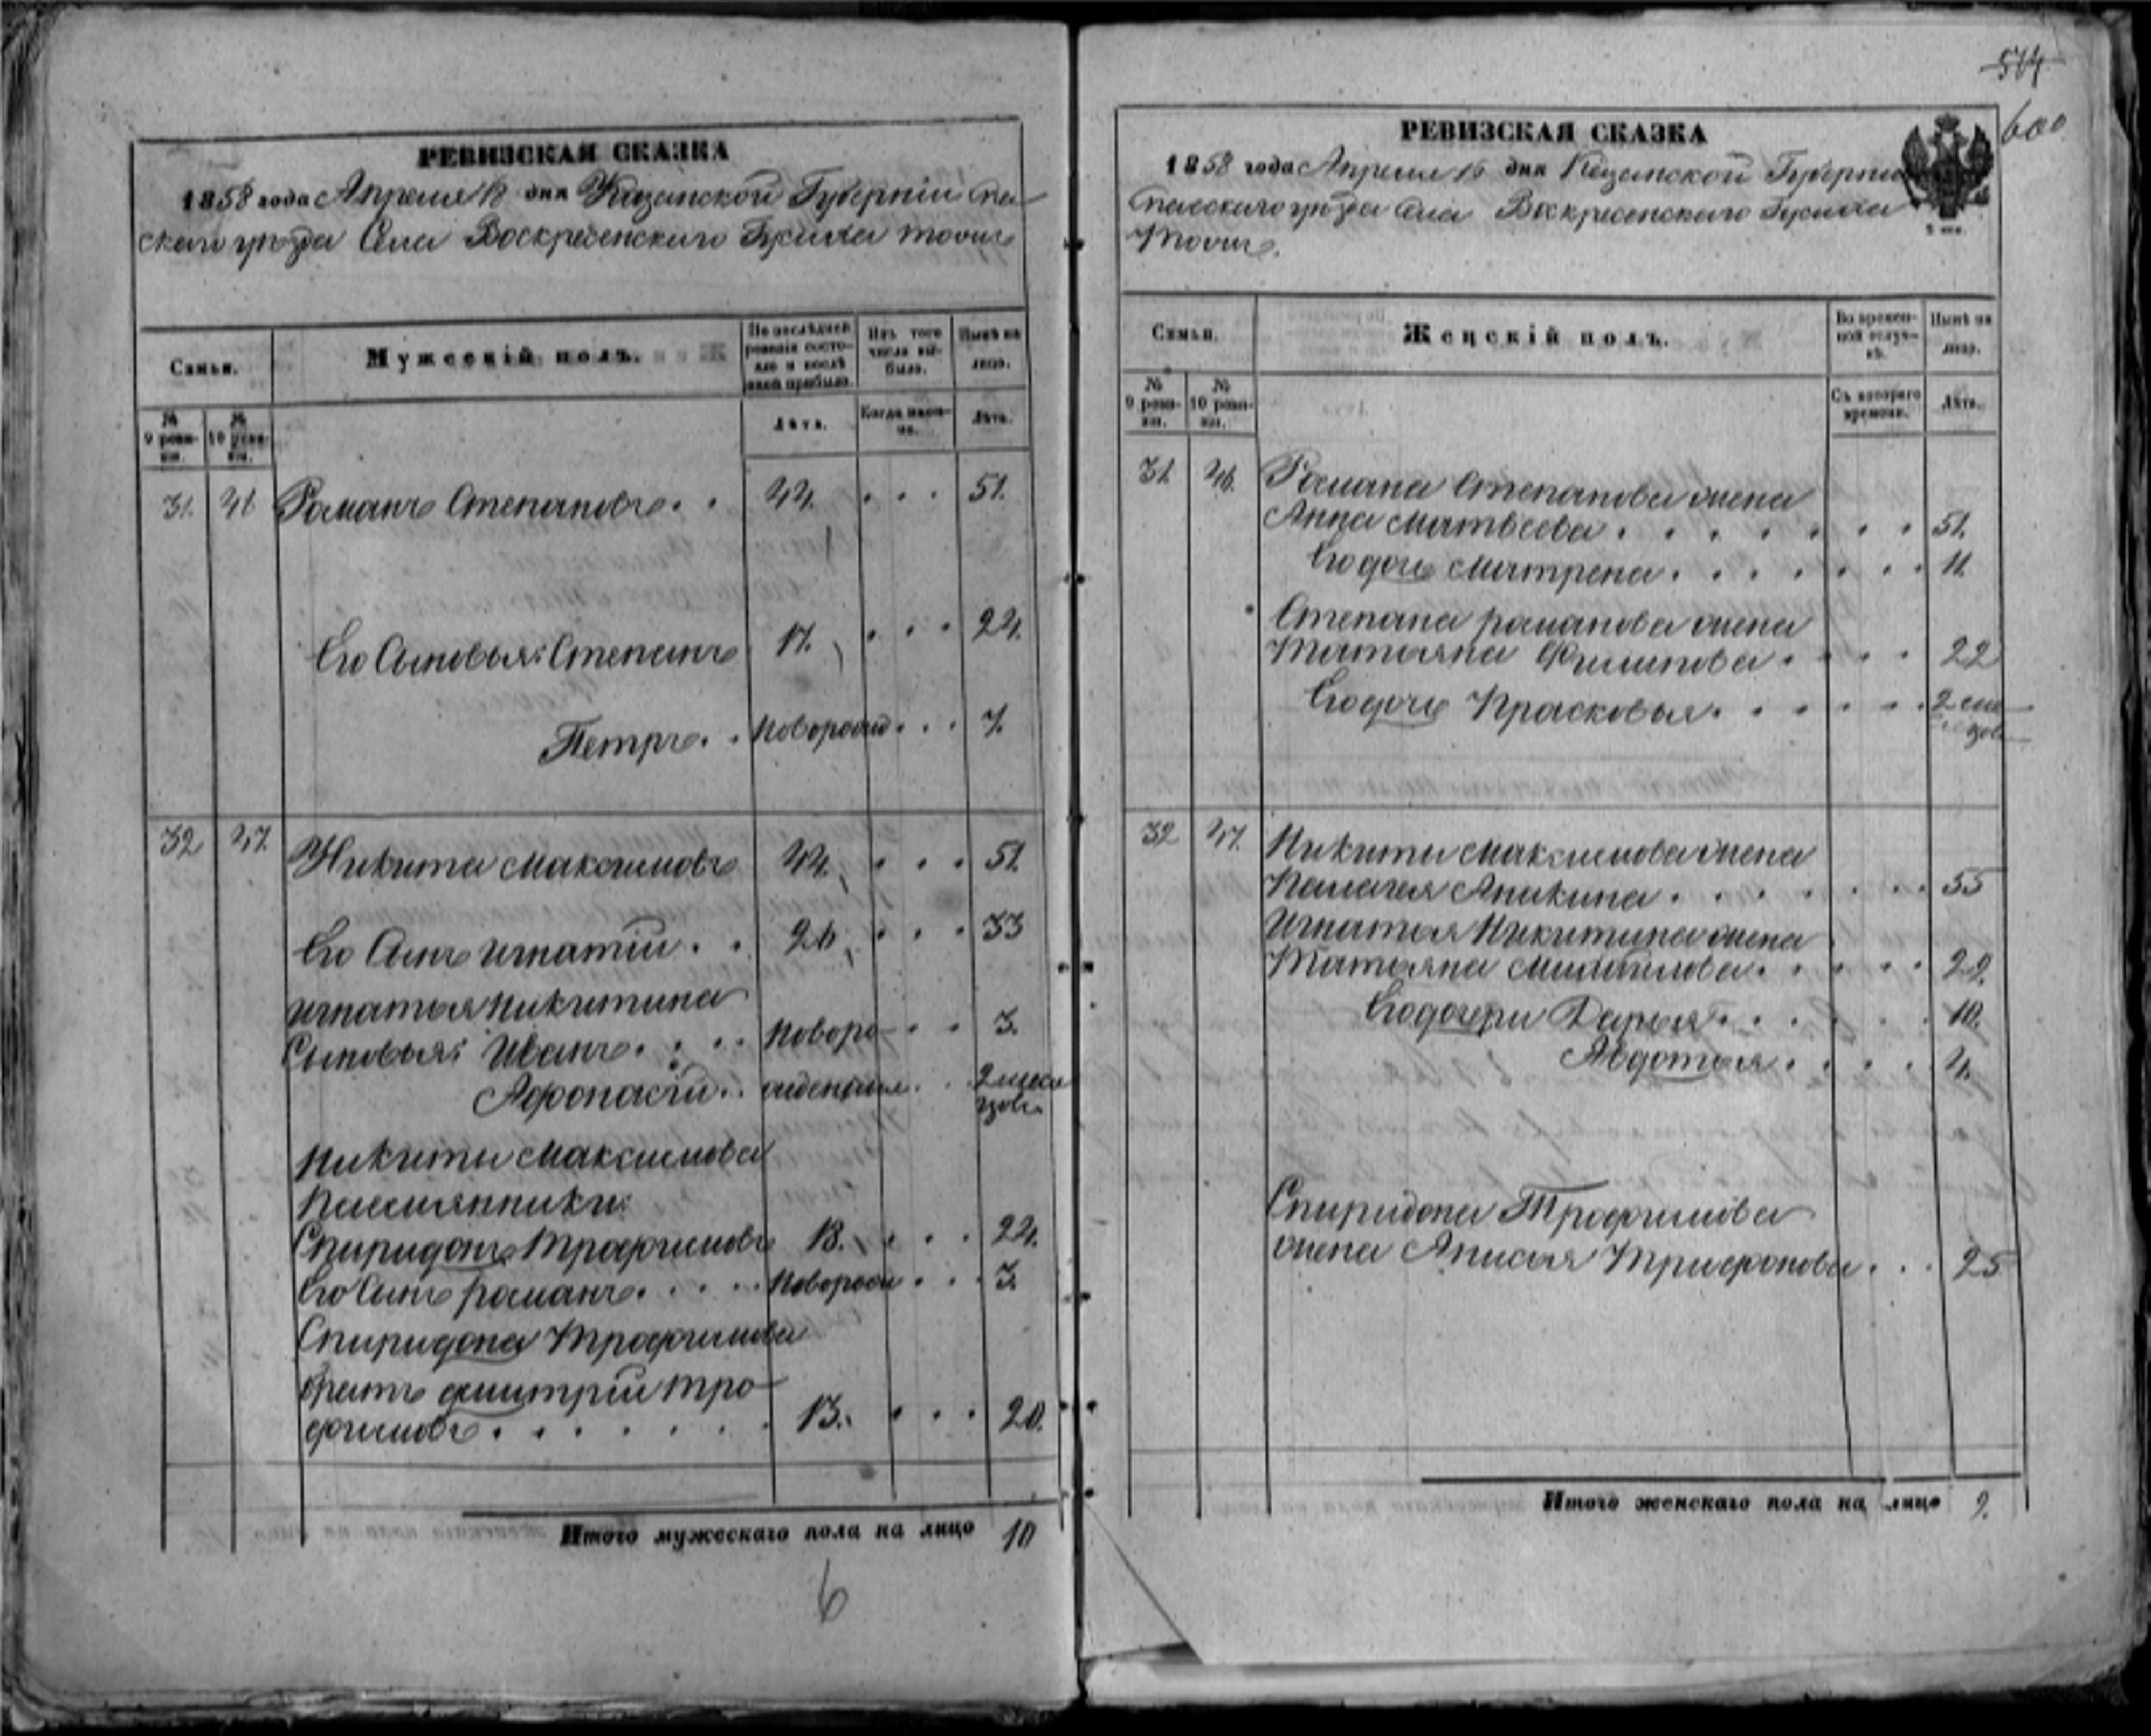 РЕВИЗСКАЯ СКАЗКА
1858 года Апреля дня Казанской Губерніи Спа-
скаго уезда Села Воскресенскаго тожъ
Семьи.
Мужескій полъ.
По послѣдней ревизіи состояло и послѣ оной прибыло.
Изъ того числа выбыло.
Нынѣ на лицо.
№ 9 ревизіи.
№ 10 ревизіи.
Лѣта.
Когда именно.
Лѣта.
31. 46 Романъ Степановъ. . 44. . . . 51.
Его Сыновья: Степанъ 17. . . . 24.
Петръ. . Новорожд . . . 7.
32 47. Никита Максимовъ 44. . . . 51.
Его Сынъ игнатій . . 26 . . . 33
игнатья Никитина
Сыновья: Иванъ. . . . Новоро- . . 3.
Афонасій. . жденныя. . 2 меся
цовъ.
Никиты Максимова
Племянники:
Спиридонъ Трофимовъ . . . 24.
Его Сынъ романъ. . . . Новорож . . . 3.
Спиридона Трофимова
братъ дмитрій тро-
фимовъ . . . . . . . 13. . . . 20.
Итого мужескаго пола на лицо 10
6
514
600
РЕВИЗСКАЯ СКАЗКА
1858 года Апреля 16 дня Казанской Губерніи
Спаскаго уезда Села Воскресенскаго
тожъ.
Семьи.
Женскій полъ.
Во временной отлучкѣ.
Нынѣ на лицо.
№ 9 ревизіи.
№ 10 ревизіи.
Съ котораго времени.
Лѣта.
31. 46. Романа Степанова жена
Анна Матвеева . . . . . . . 51.
Его дочь Матрена . . . . . . . 11.
Степана романова жена
Татьяна Филипова . . . . 22
Его дочь Прасковья. . . . . . 2 ме
цов
32 47. Никиты Максимова жена
Палагея Аникина . . . . . . . 55
Игнатья Никитина жена
Татьяна . . . . . 29.
Его дочери Дарья . . . . . 10.
Авдотья. . . . . 4.
Спиридона Трофимова
жена Анисья Трифонова . . . 25
Итого женскаго пола на лицо 9.